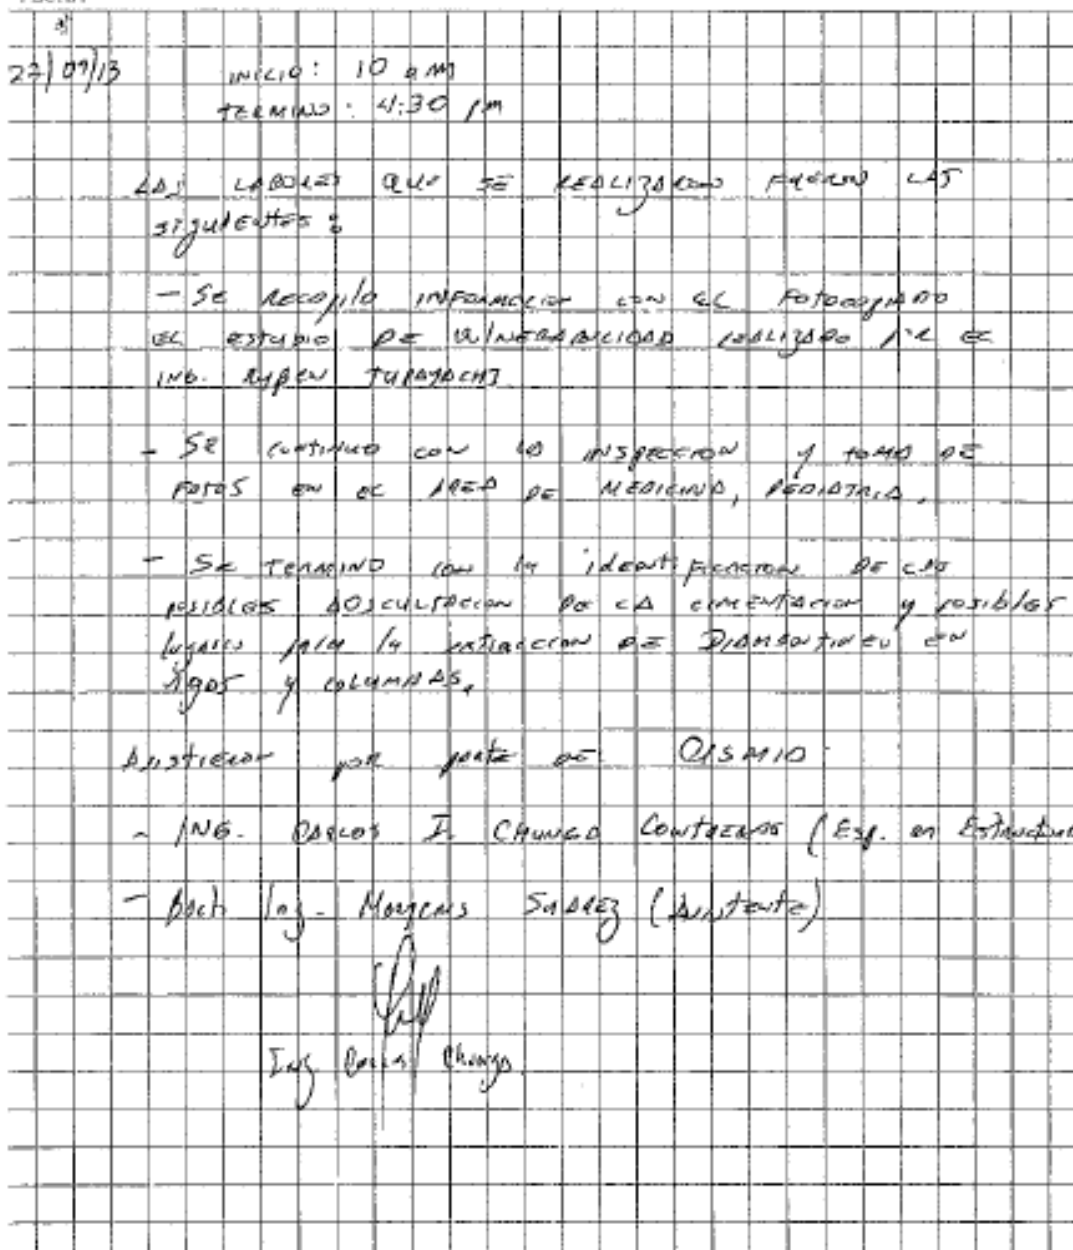 27/09/13
INICIO: 10 am
TERMINO: 4:30 pm
LAS LABORES QUE SE REALIZARON FUERON LAS
siguientes:
- Se RECOpilo INFORMACION CON EL FOTOCOPIADO
EL ESTUDIO DE VULNERABILIDAD REALIZADO POR EL
ING. RUBEN TUPAYACHI
- Se CONTINUO CON LA INSPECCION Y TOMA DE
FOTOS EN EL AREA DE MEDICINA, PEDIATRIA.
- Se TERMINO CON la identificacion DE LAS
POSIBLES AUSCULTACION DE LA CIMENTACION y posibles
lugares para la extraccion DE DIAMANTINEO EN
vigas y COLUMNAS.
Asistieron por parte DE
- ING. CARLOS I. CHUNGA CONTRERAS (Esp. en Estructur
- Bach Ing. SUAREZ (Asistente)
Ing Carlos Chunga.